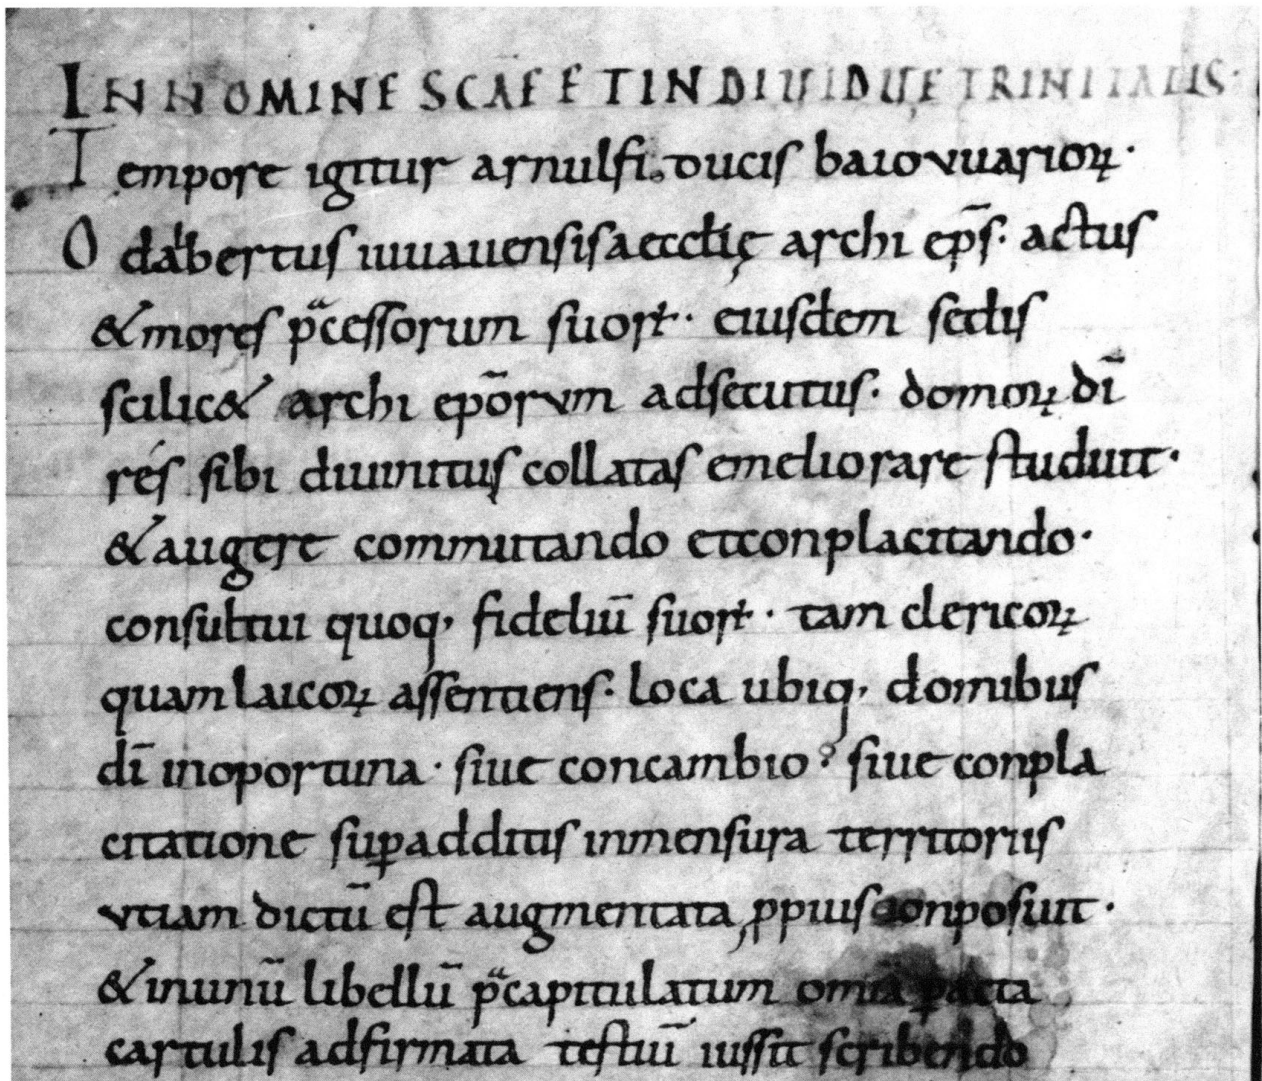 IN NOMINE SCĀE ET INDIUIDUĘ TRINITATIS·
Tempore igitur arnulfi. ducis baiovuarioꝝ·
Odalbertus iuuauensis aecclię archi ep̄s· actus
& mores p̄cessorum suoꝝ· eiusdem sedis
scilic& archi ep̄orvm adsecutus· domoꝝ dī
rés sibi diuinitus collatas emeliorare studuit·
& augere commutando et conplacitando·
consultui quoq, fideliū suoꝝ· tam clericoꝝ
quam laicoꝝ assentiens· loca ubiq, domibus
dī inoportuna· siue concambio siue conpla
citatione suꝑadditis inmensura territoriis
vtiam dictū est augmentata ꝓpius conposuit·
& inunū libellū p̄capitulatum omīa ꝑacta
cartulis adfirmata testiū iussit scribendo